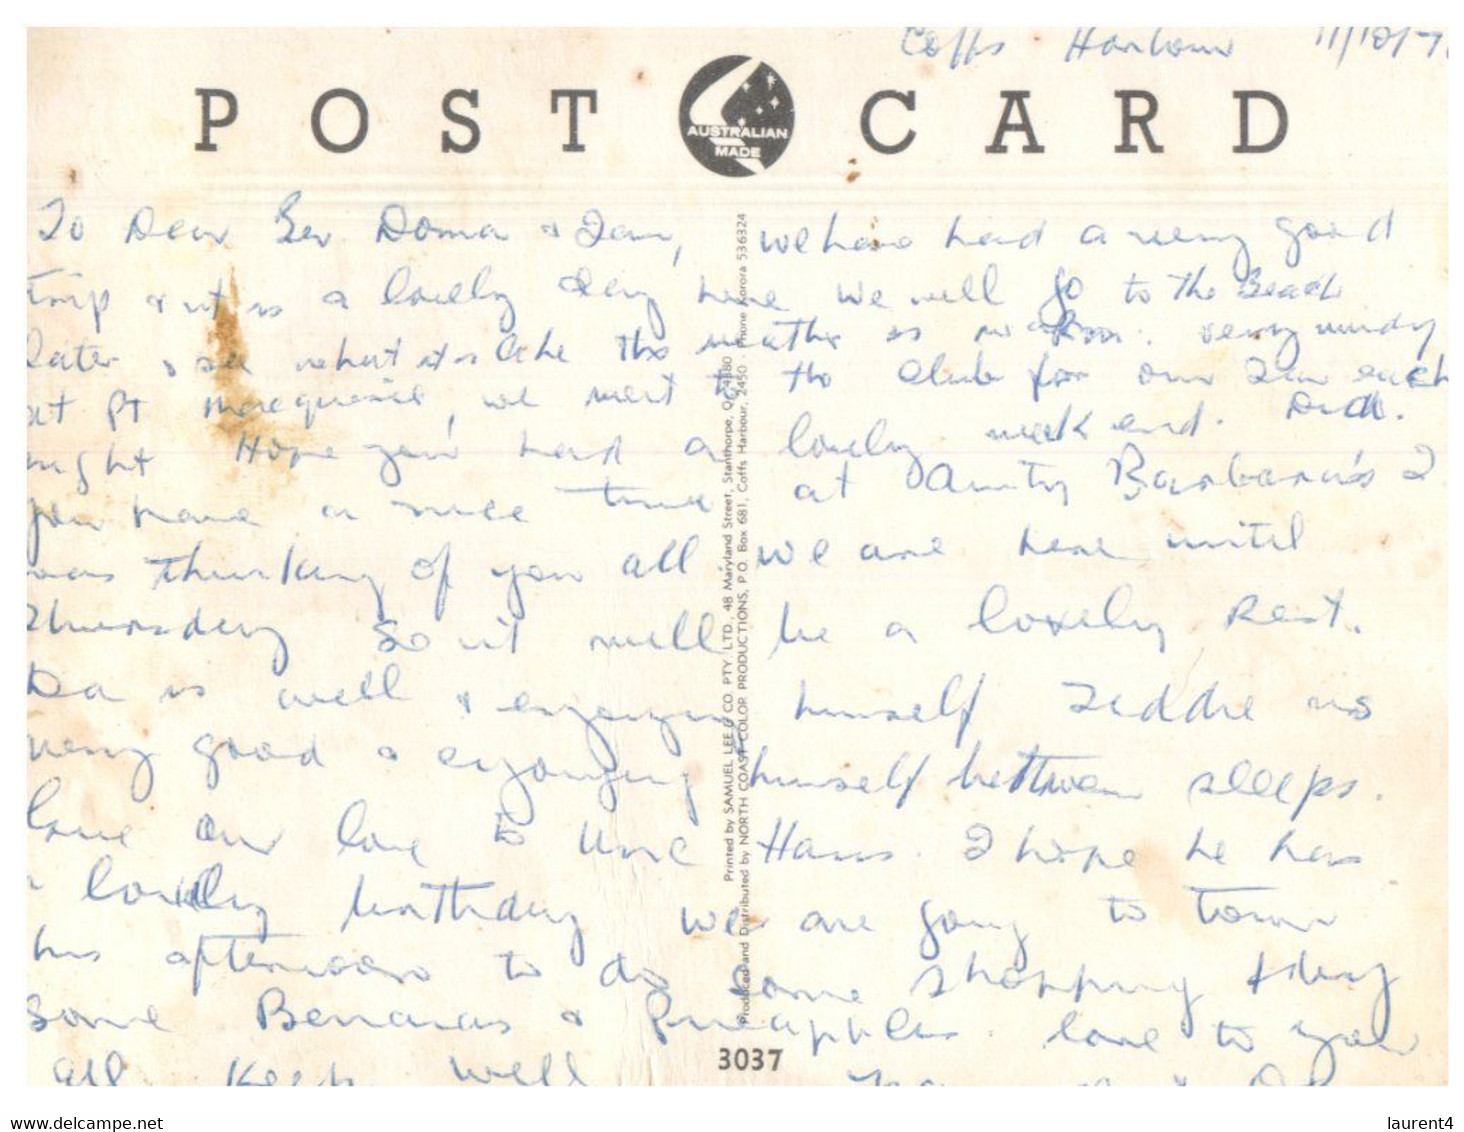 Coffs Harbour 11/10/7
POST CARD
AUSTRALIAN
MADE
To Dear Bev Donna & Ian, we have had a very good
trip & it is a lovely day here We will go to the Beach
later & see what it is like the weather is warm. very windy
at Pt Macquarie, we went to the club for our tea each
night Hope you had a lovely week end. Did.
you have a nice time at Amity Barbara's I
was thinking of you all we are here until
Thursday So it will be a lovely Rest.
is well & enjoying himself Teddie is
very good & enjoying himself between sleeps.
our love to Unc Hans. I hope he has
a lovely birthday we are going to town
this afternoon to do some shopping & buy
some Bananas & Pineapples. love to you
all Keep well
Printed by SAMUEL LEE & CO PTY. LTD., 48 Maryland Street, Stanthorpe, Q. 4380
Produced and Distributed by NORTH COAST COLOR PRODUCTIONS, P.O. Box 681, Coffs Harbour, 2450 . Phone Korora 536324
3037
www.delcampe.net
laurent4